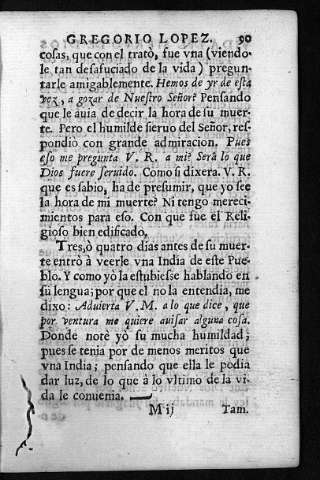 GREGORIO LOPEZ. 90
cosas, que con el tratò, fue vna (viendo-
le tan desafuciado de la vida) pregun-
tarle amigablemente. Hemos de yr de esta
vez, a gozar de Nuestro Señor? Pensando
que le auia de decir la hora de su muer-
te. Pero el humilde sieruo del Señor, res-
pondiò con grande admiracion. Pues
eso me pregunta V. R. a mi? Serà lo que
Dios fuere seruido. Como si dixera. V. R.
que es sabio, ha de presumir, que yo see
la hora de mi muerte? Ni tengo mereci-
mientos para eso. Con que fue el Reli-
gioso bien edificado.
Tres, ò quatro dias antes de su muer-
te entrò à veerle vna India de este Pue-
blo. Y como yò la estubiesse hablando en
su lengua; por que el no la entendia, me
dixo: Aduierta V. M. a lo que dice, que
por ventura me quiere auisar alguna cosa.
Donde notè yò su mucha humildad;
pues se tenia por de menos meritos que
vna India; pensando que ella le podia
dar luz, de lo que à lo vltimo de la vi-
da le conuenia.
M ij Tam.